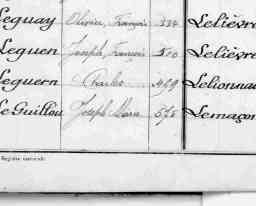 Leguay Olivier, François 334 Lelièvre
Leguen Joseph, François 500 Lelièvre
Leguern Charles 499 Lelionnais
Le Guillou Joseph Marie 575 Lemaçon